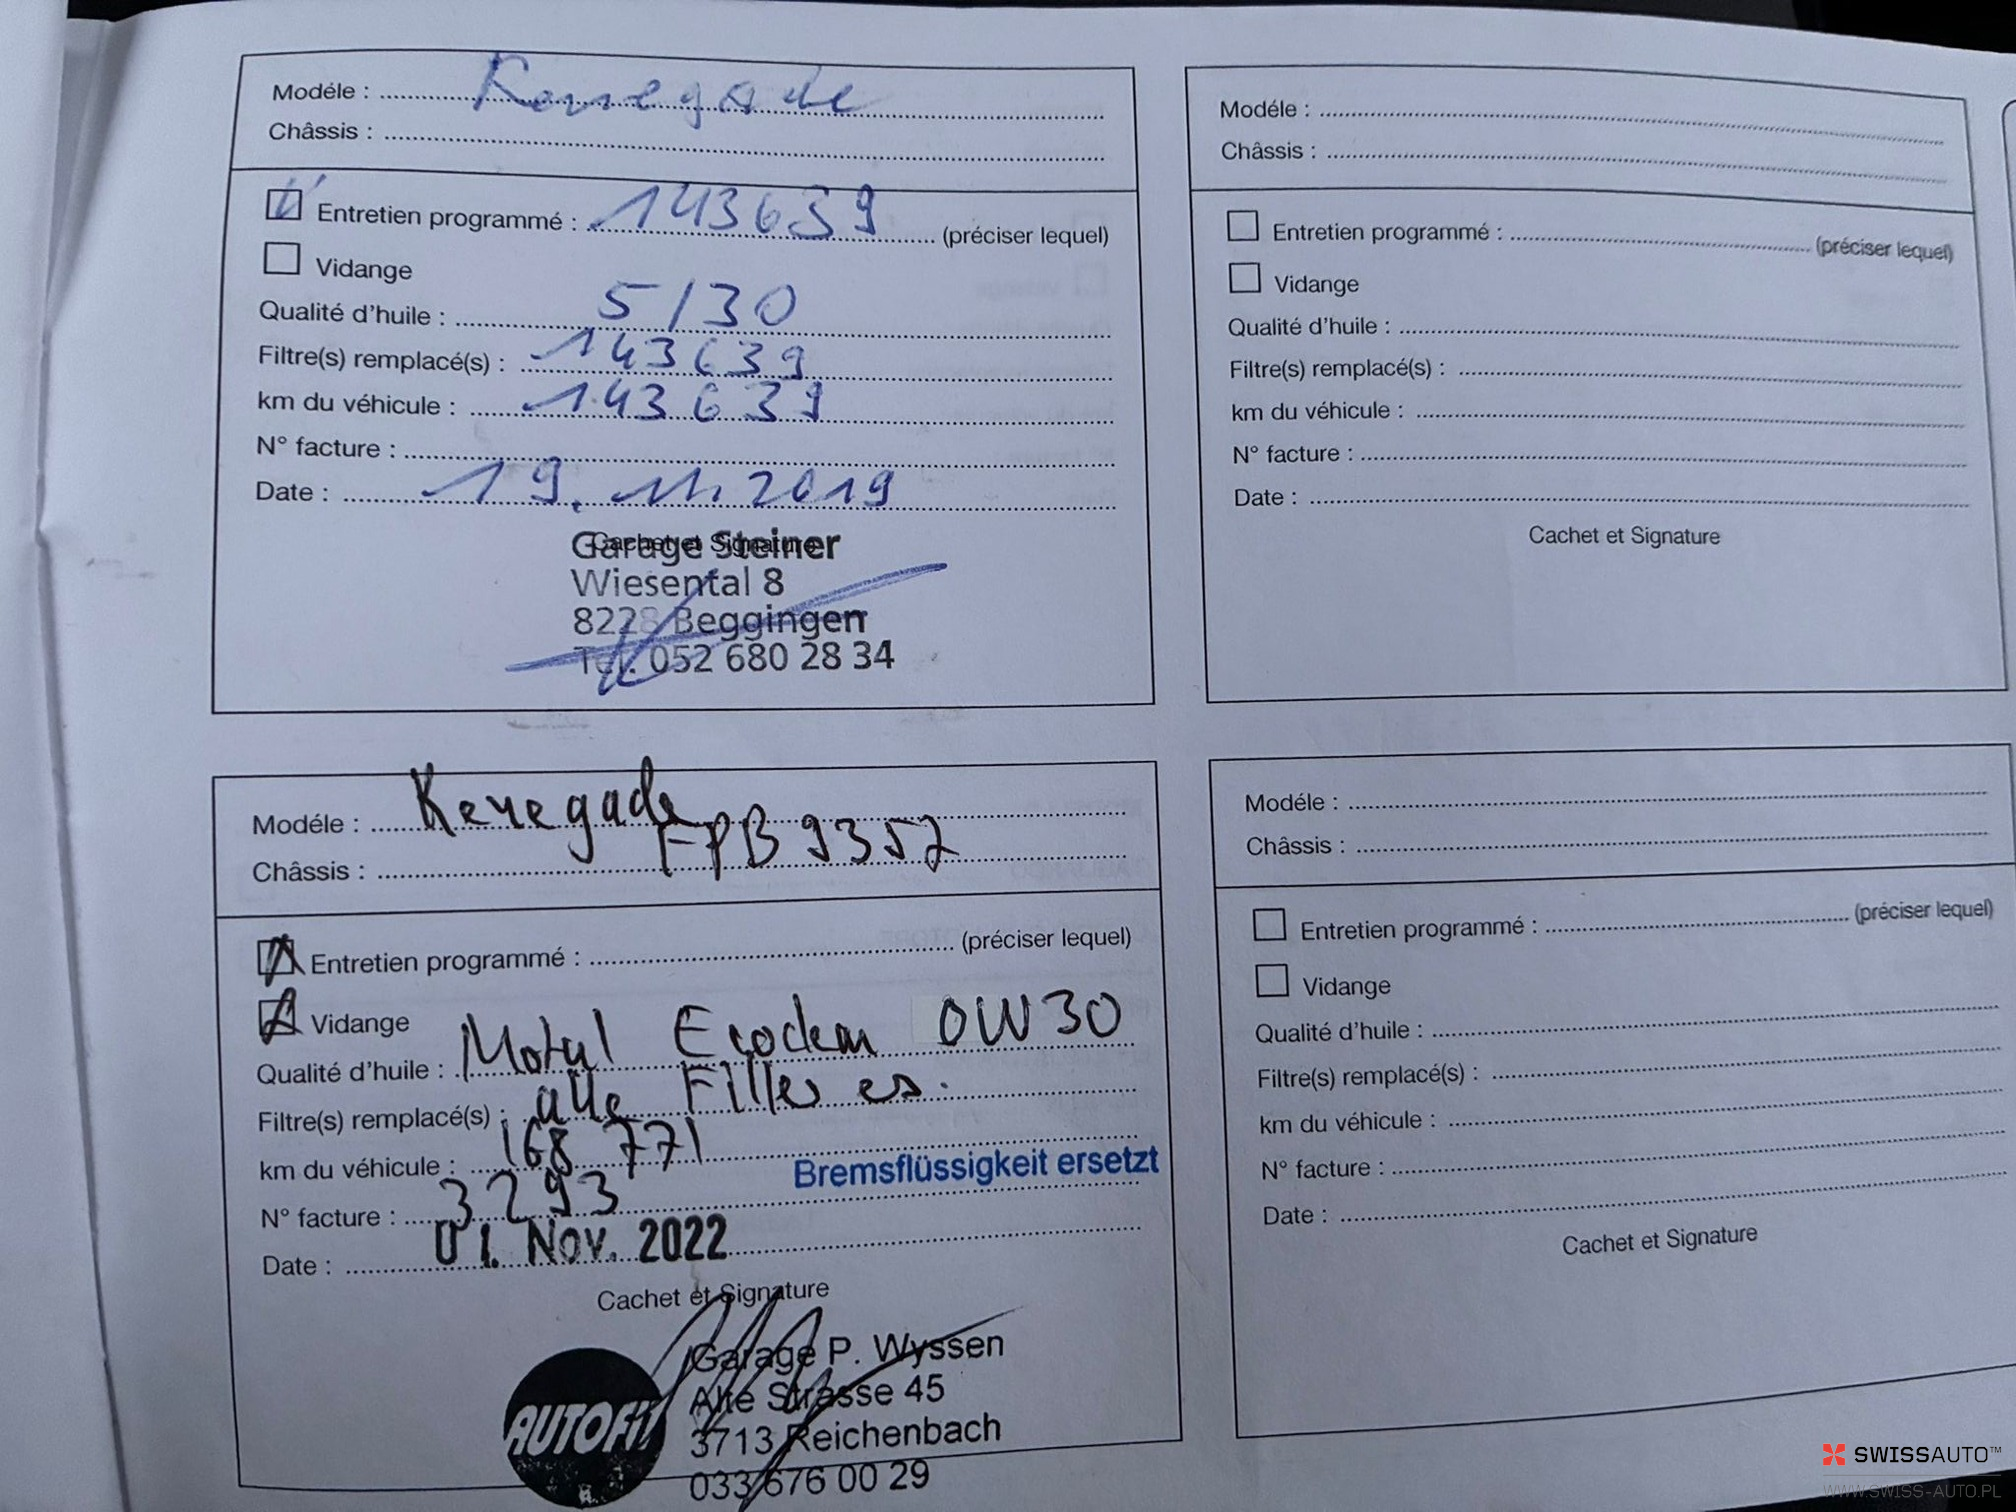 Modéle : Renegade
Châssis :
Entretien programmé : 143639 (préciser lequel)
Vidange
Qualité d'huile : 5/30
Filtre(s) remplacé(s) : 143639
km du véhicule : 143639
N° facture :
Date : 19. 11. 2019
Cachet et Signature
Garage Steiner
Wiesental 8
8228 Beggingen
Tel. 052 680 28 34
Modéle :
Châssis :
Entretien programmé : (préciser lequel)
Vidange
Qualité d'huile :
Filtre(s) remplacé(s) :
km du véhicule :
N° facture :
Date :
Cachet et Signature
Modéle : Renegade
Châssis : FPB9357
Entretien programmé : (préciser lequel)
Vidange
Qualité d'huile : Motul 0W30
Filtre(s) remplacé(s) : alle Filter
km du véhicule : 168 771
Bremsflüssigkeit ersetzt
N° facture : 3293
Date : 01. Nov. 2022
Cachet et Signature
AUTOFIT
Garage P. Wyssen
Alte Strasse 45
3713 Reichenbach
033 676 00 29
Modéle :
Châssis :
Entretien programmé : (préciser lequel)
Vidange
Qualité d'huile :
Filtre(s) remplacé(s) :
km du véhicule :
N° facture :
Date :
Cachet et Signature
SWISSAUTO™
WWW.SWISS-AUTO.PL